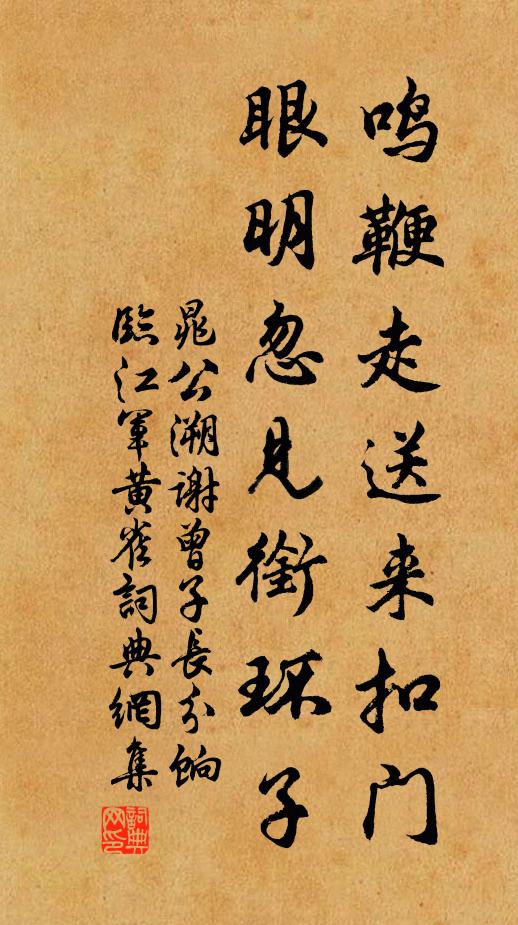 鸣鞭走送来扣门
眼明忽见衔环子
晁公溯谢曾子长分饷
临江军黄雀词典網集
詞典网印